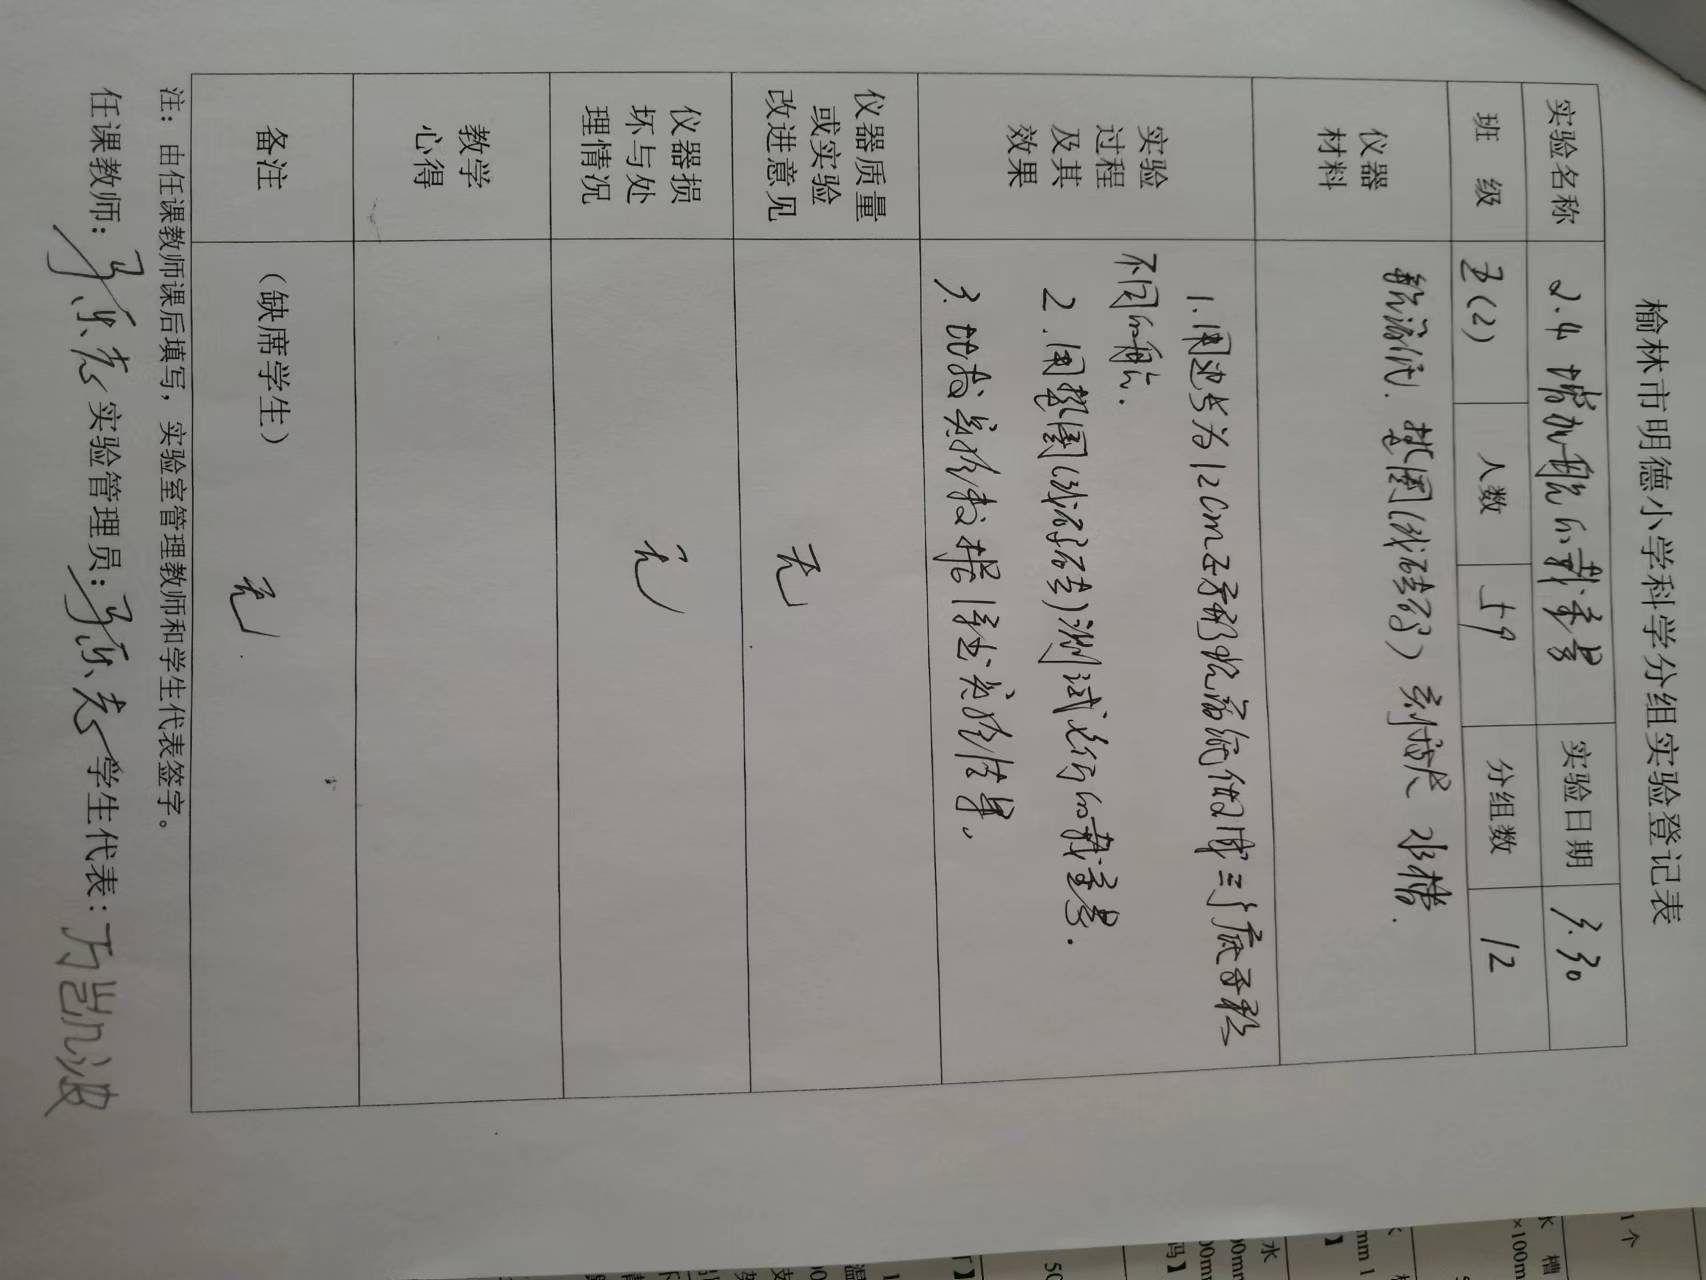 榆林市明德小学科学分组实验登记表
实验名称 2.4 增加船的载重量 实验日期 3.30
班 级 五(2) 人数 59 分组数 12
仪器
材料
铝箔纸. 垫圈(或砝码) 刻度尺 水槽.
实验
过程
及其
效果
1.用边长为12cm正方形铝箔纸做成三个底面积
不同的船.
2.用垫圈(或砝码)测试它们的载重量.
3.
仪器质量
或实验
改进意见
无
仪器损
坏与处
理情况
无
教学
心得
备注
(缺席学生)
无.
注: 由任课教师课后填写, 实验室管理教师和学生代表签字。
任课教师: 实验管理员: 学生代表: 万凯波
1个
水 槽
×100m
mm 1
】
水
00mm
00mm
码】
50
】
1
温